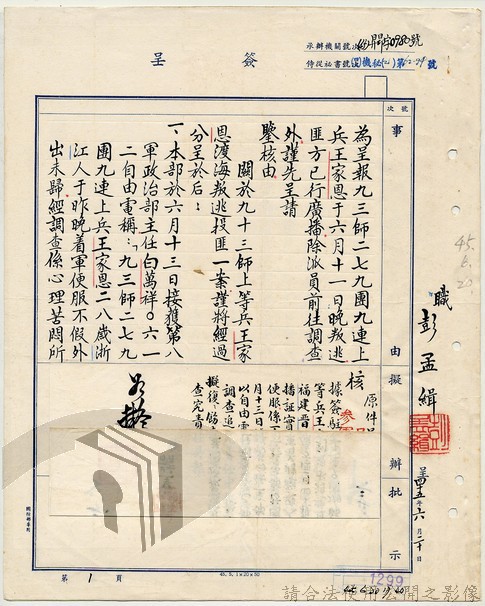 簽呈
承辦機關號次
侍從祕書號次
號
號次
事由
擬辦
批示
為呈報九三師二七九團九連上
兵王家恩于六月十一日晚叛逃
匪方已行廣播除派員前往調查
外謹先呈請
鑒核由
關於九十三師上等兵王家
恩渡海叛逃投匪一案謹將經過
分呈於后：
一、本部於六月十三日接獲第八
軍政治部主任白萬祥〇六一
二自由電稱：「九三師二七九
團九連上兵王家恩二八歲浙
江人于昨晚着軍便服不假外
出未歸經調查係心理苦悶所
職 彭孟緝
四十五年六月二十日
原件
核
據簽
等兵王
福建晉
播証實
便服係
月十三日
以自由電
調查追
擬復
查究責
45.6.20.
第1頁
45.5.1×20×50
1299
請合法使用公開之影像